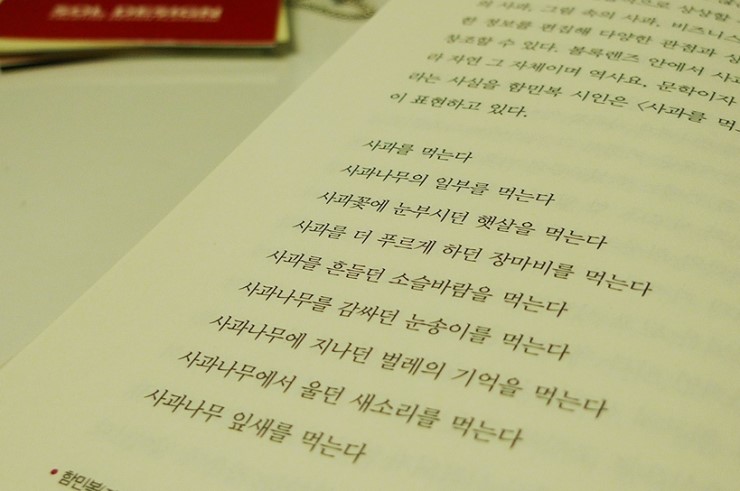 SOL DESIGN
으로 상상할
의 사과, 그림 속의 사과, 비즈니스
한 정보를 편집해 다양한 관점과
창조할 수 있다. 블록렌즈 안에서 사과
라 자연 그 자체이며 역사요, 문학이자
라는 사실을 함민복 시인은 <사과를 먹
이 표현하고 있다.
사과를 먹는다
사과나무의 일부를 먹는다
사과꽃에 눈부시던 햇살을 먹는다
사과를 더 푸르게 하던 장마비를 먹는다
사과를 흔들던 소슬바람을 먹는다
사과나무를 감싸던 눈송이를 먹는다
사과나무에 지나던 벌레의 기억을 먹는다
사과나무에서 울던 새소리를 먹는다
사과나무 잎새를 먹는다
• 함민복